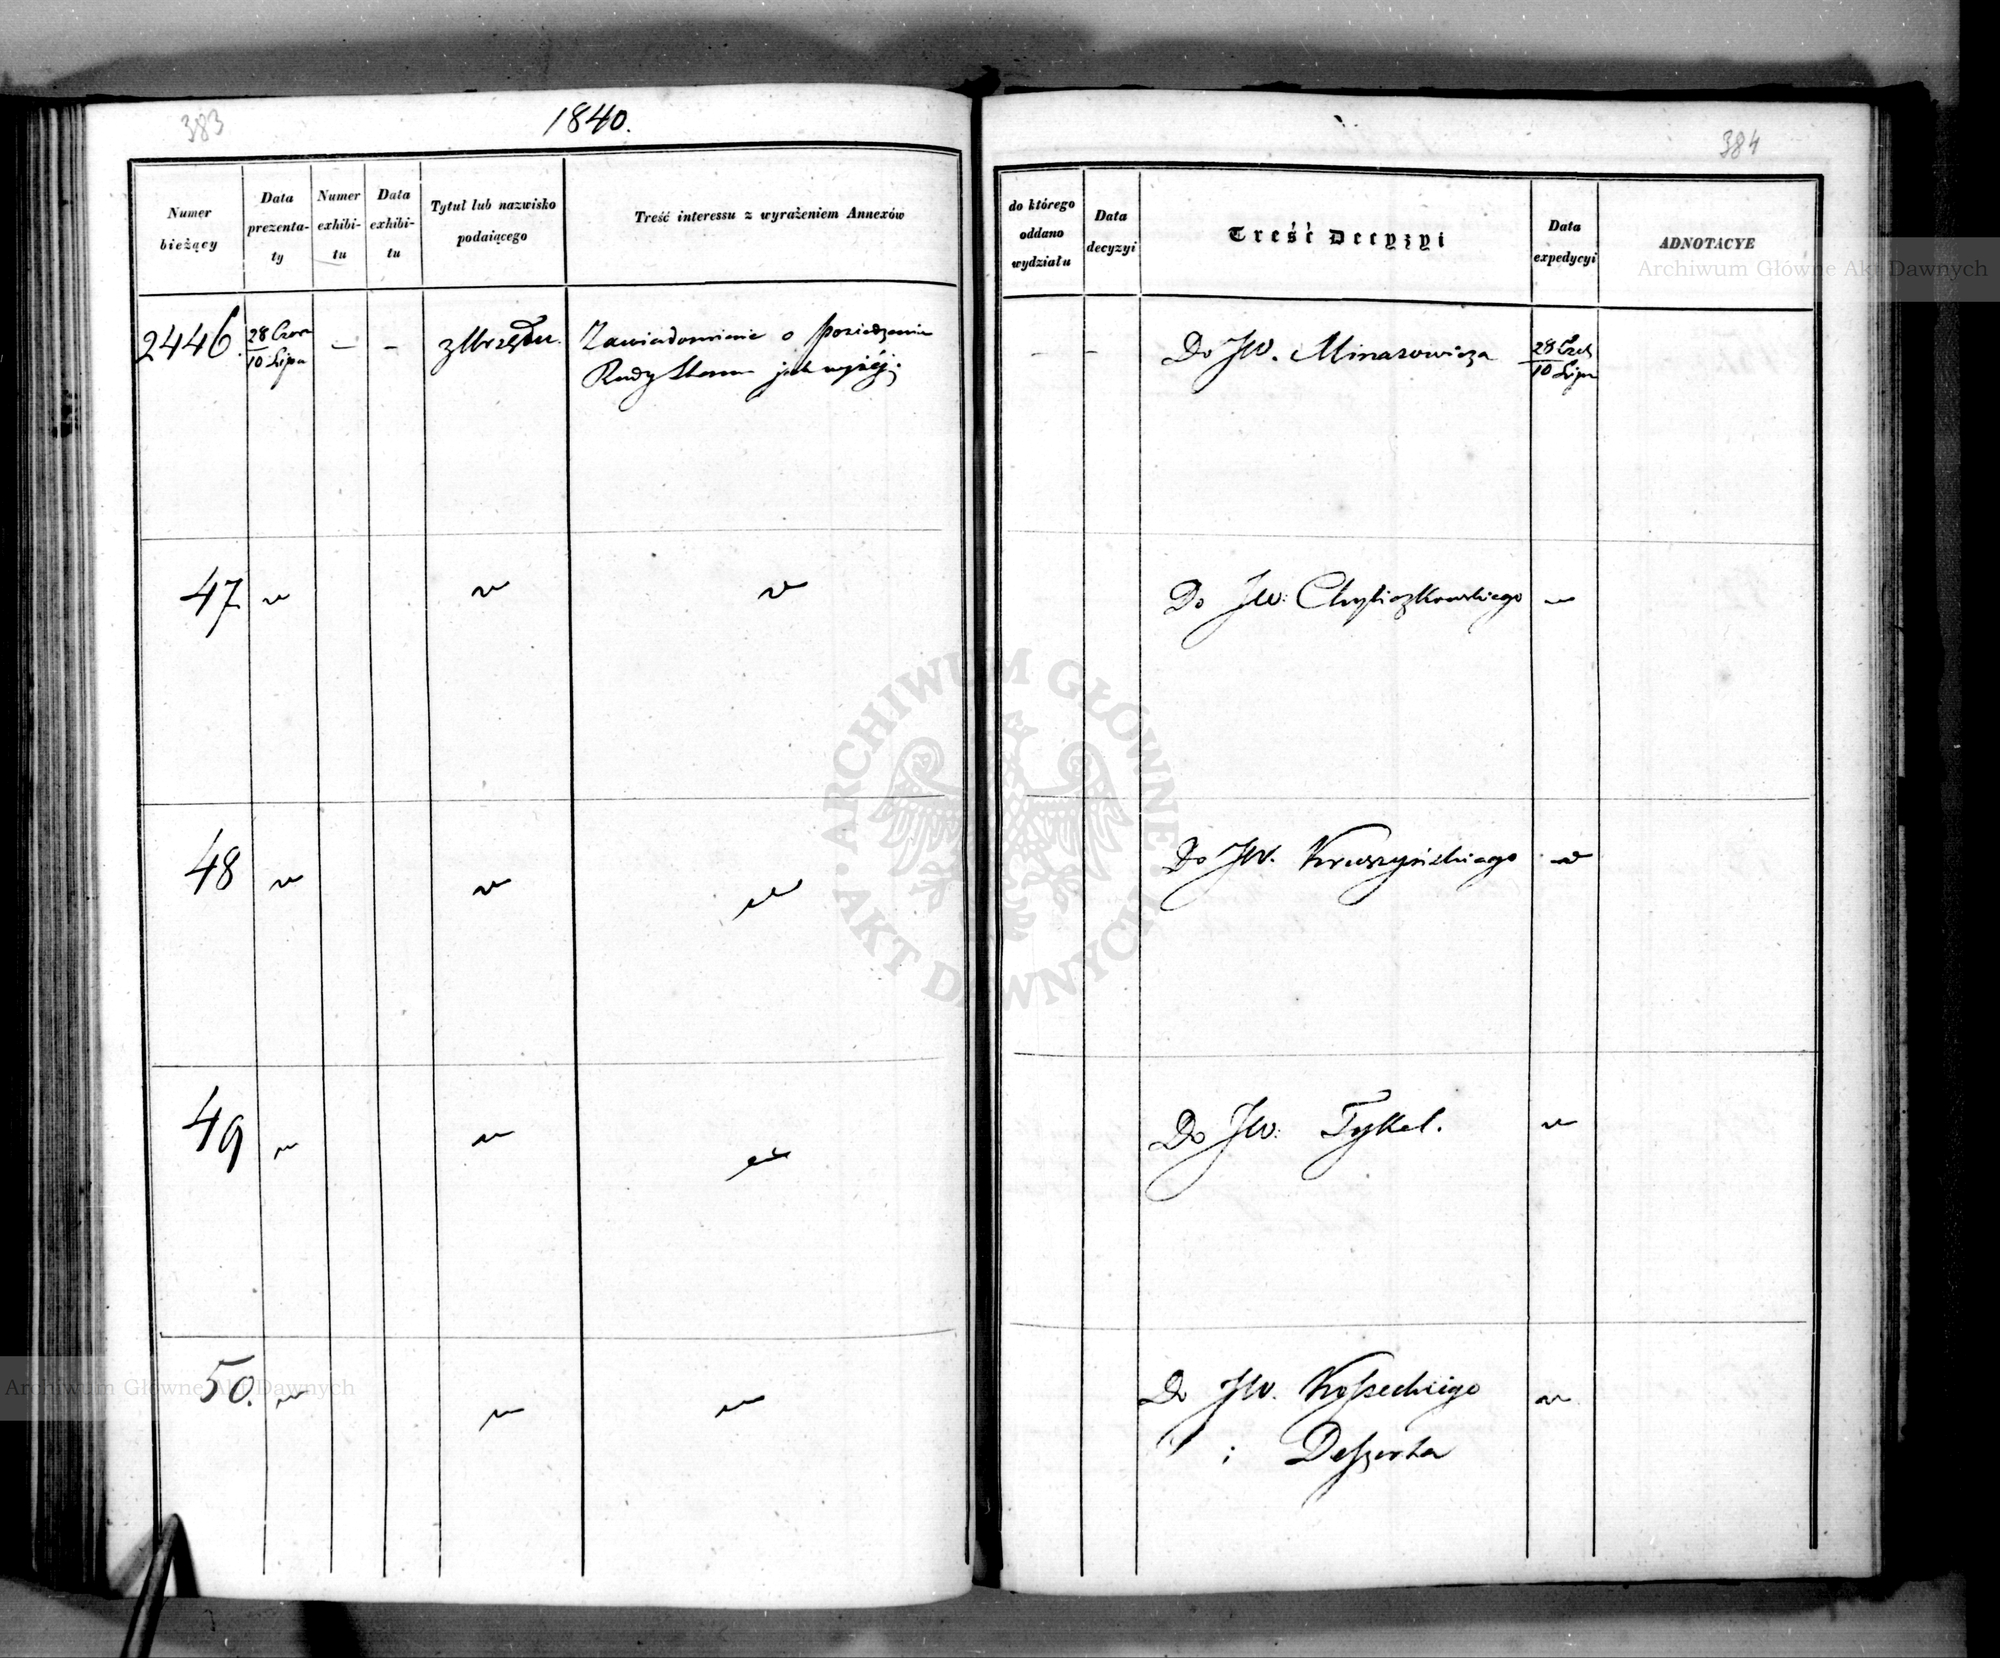 383
1840.
Numer
bieżący
Data
prezenta-
ty
Numer
exhibi-
tu
Data
exhibi-
tu
Tytuł lub nazwisko
podaiącego
Treść interessu z wyrażeniem Annexów
2446.
28 Czer
10 Lipa
z Urzędu.
Zawiadomienie o posiedzeniu
Rady Stanu jak wyżej.
47
48
49
50.
384
do którego
oddano
wydziału
Data
decyzyi
Treść Decyzyi
Data
expedycyi
ADNOTACYE
Do JW. Minasowicza
28 Cze
10 Lipa
Do JW: Chyliczkowskiego
Do JW. Kruszyńskiego
Do JW: Tykel.
Do JW. Kosseckiego
i Deszerta
ARCHIWUM GŁÓWNE AKT DAWNYCH
Archiwum Główne Akt Dawnych
Archiwum Główne Akt Dawnych